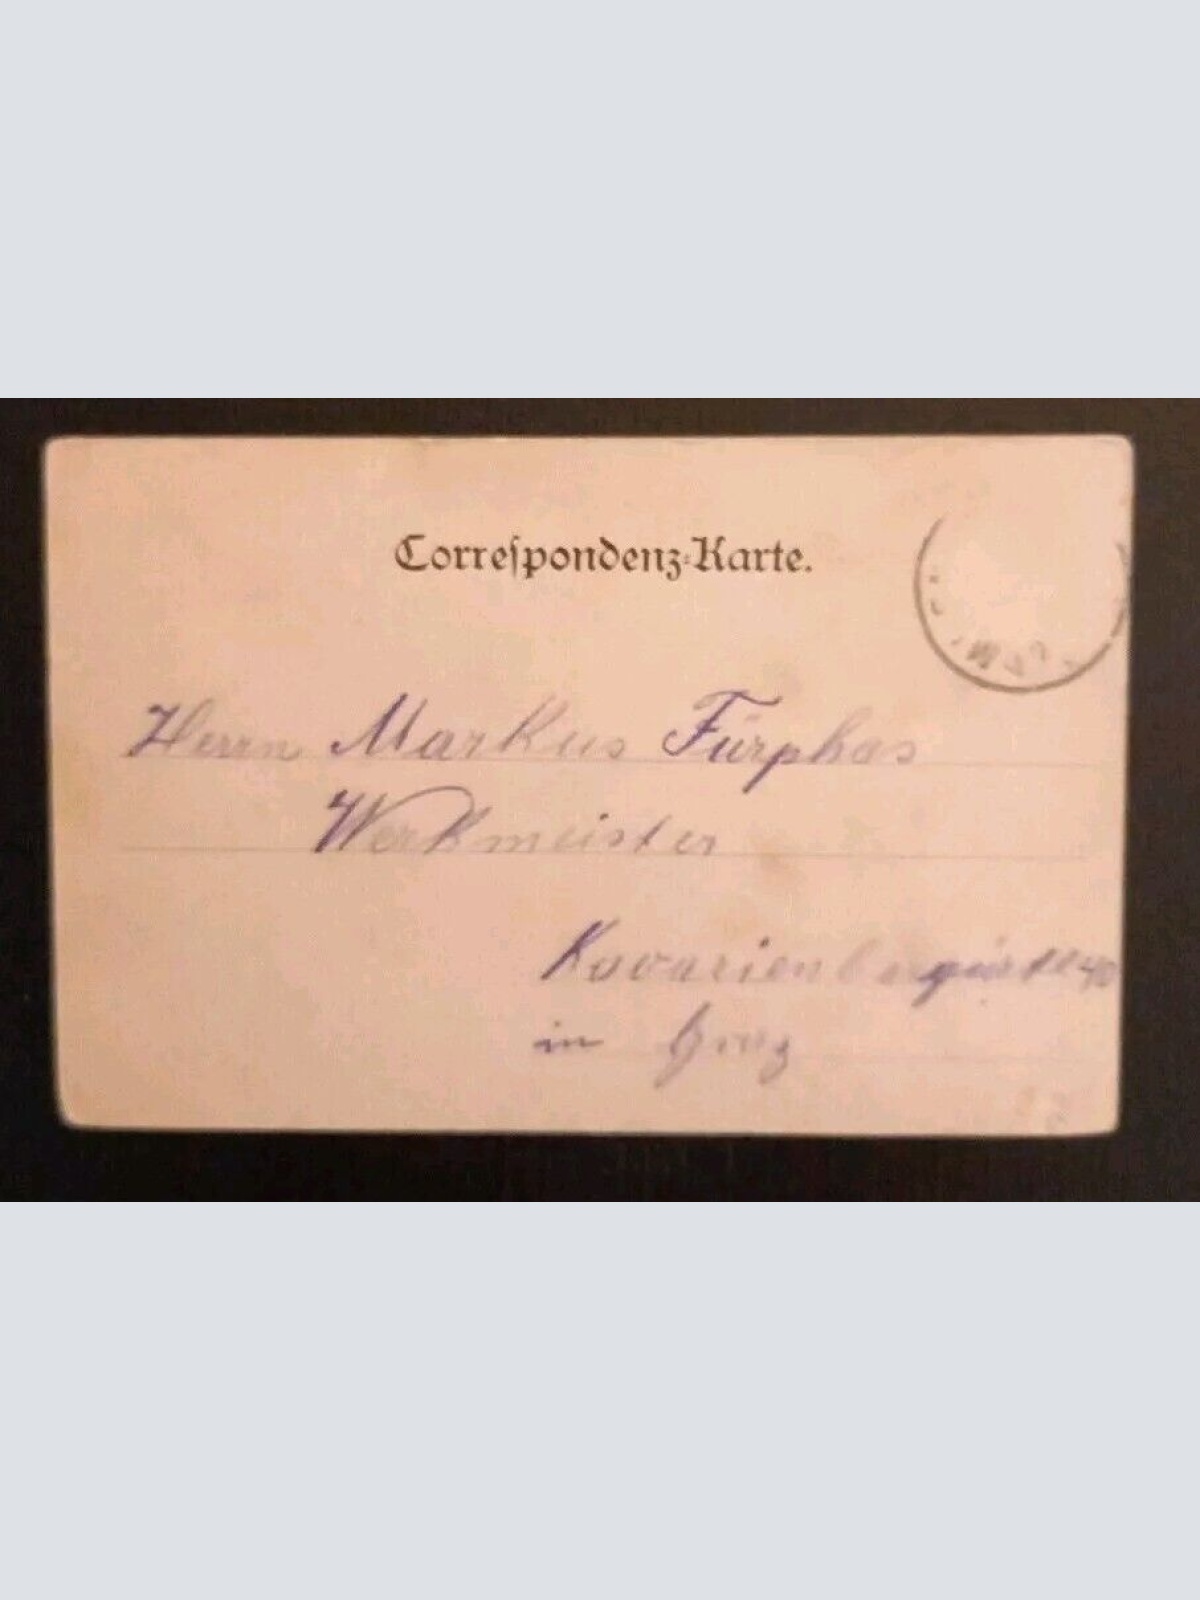 Correſpondenz-Karte.
Herrn Markus Fürphas
Werkmeister
in Graz